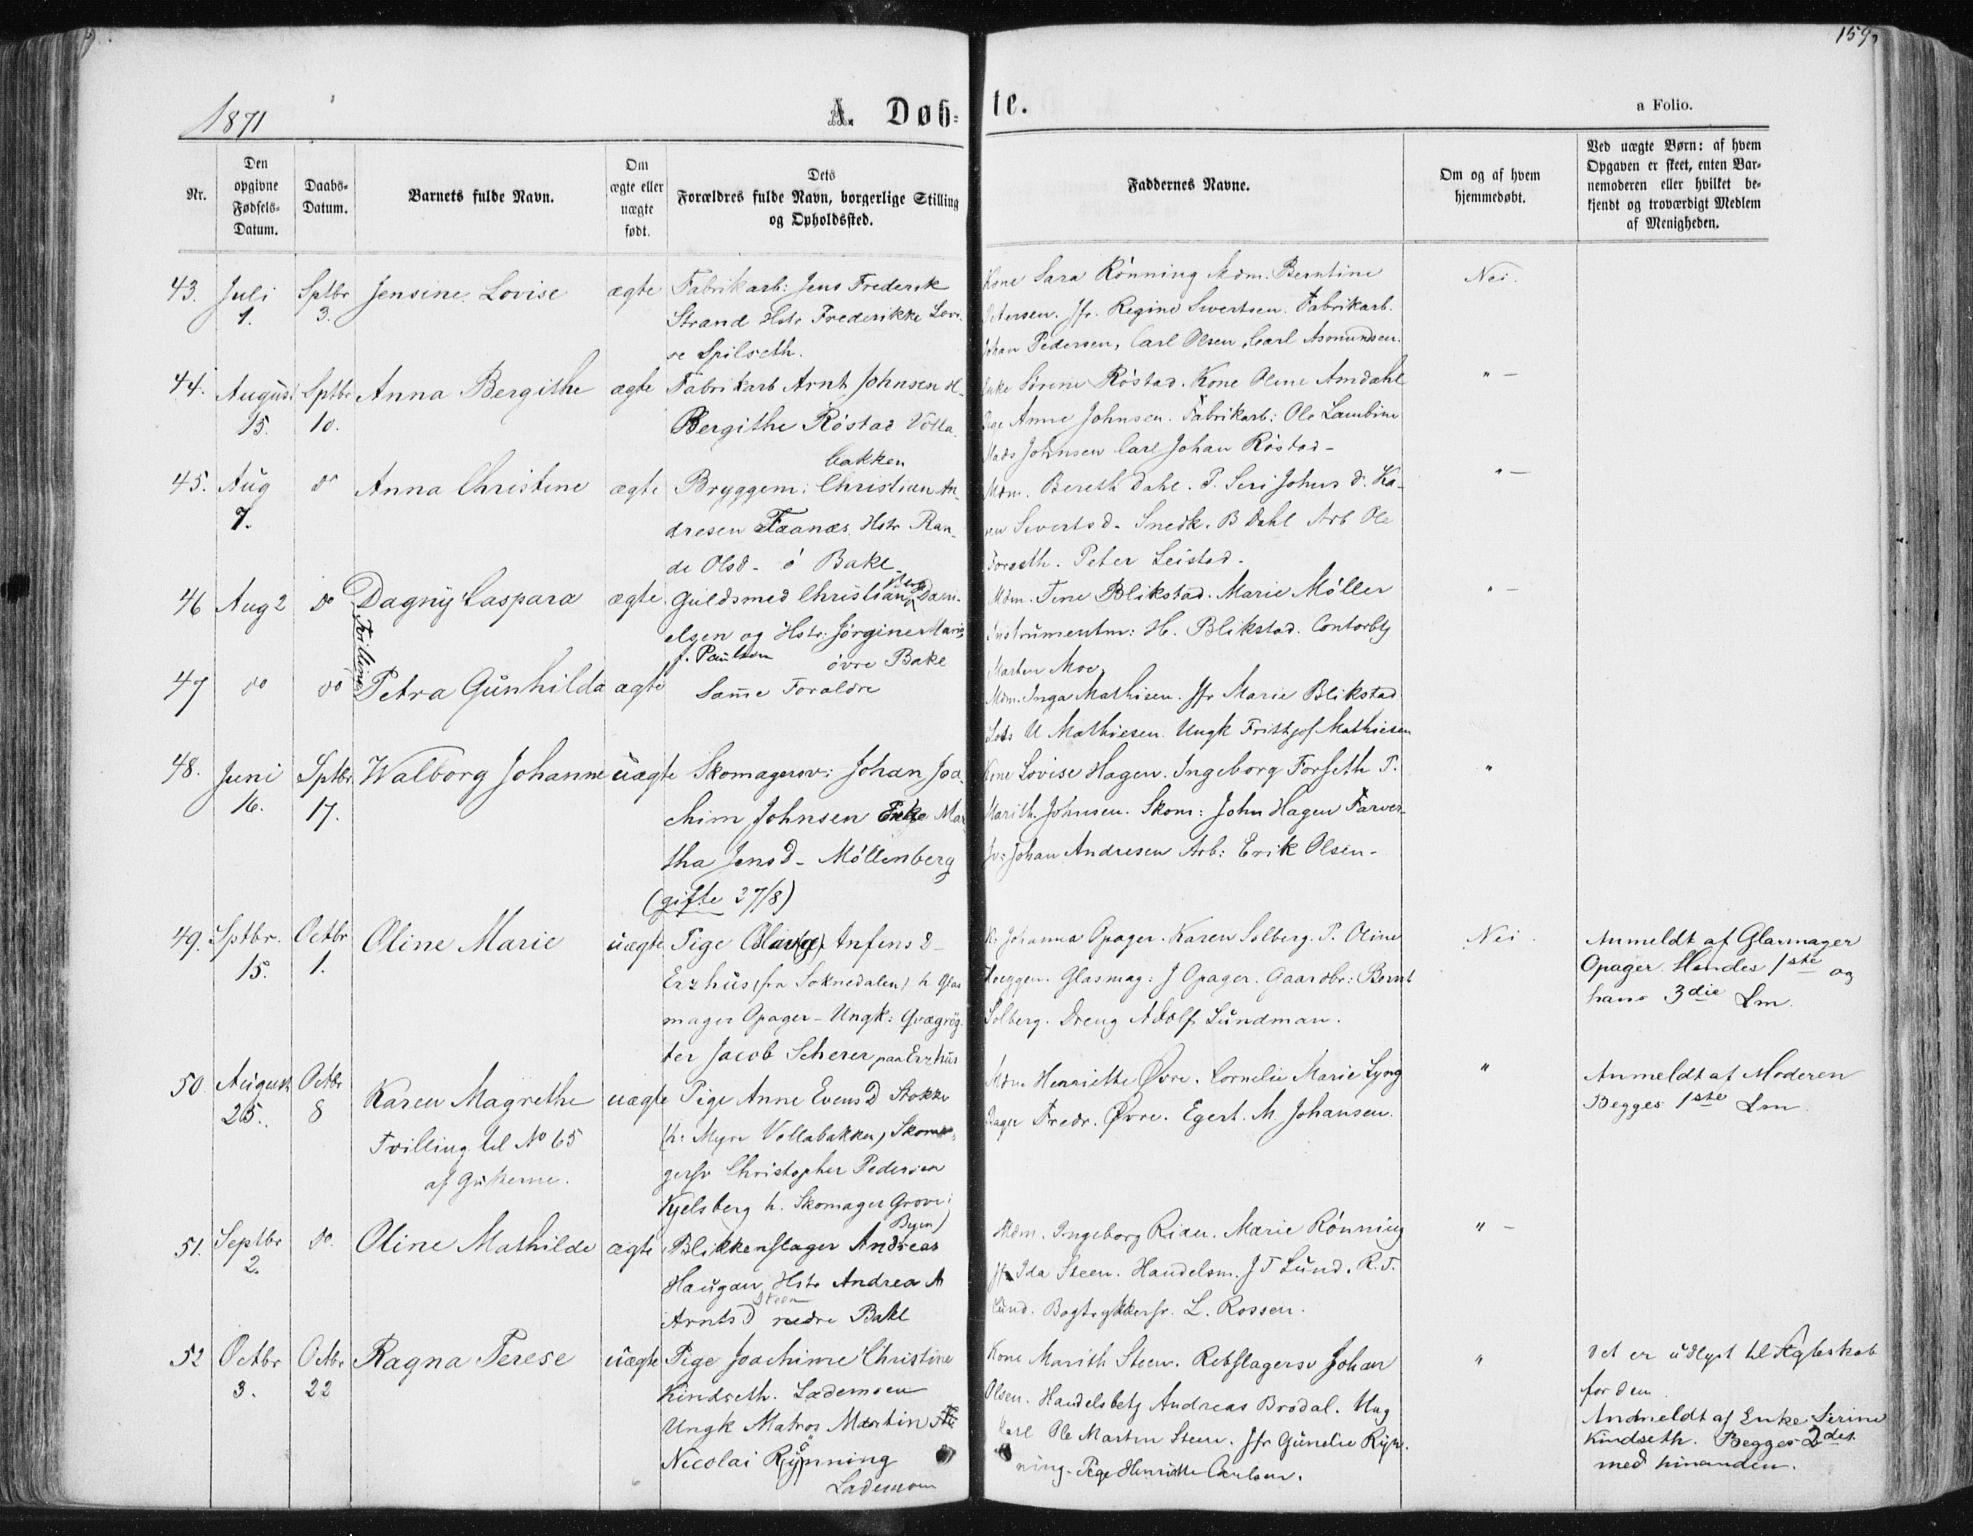 159
1871
A. Døbte.
a Folio.
Nr.
Den opgivne Fødsels-Datum.
Daabs-Datum.
Barnets fulde Navn.
Om ægte eller uægte født.
Dets Forældres fulde Navn, borgerlige Stilling og Opholdssted.
Faddernes Navne.
Om og af hvem hjemmedøbt.
Ved uægte Børn: af hvem Opgaven er skeet, enten Barnemoderen eller hvilket bekjendt og troværdigt Medlem af Menigheden.
43. Juli 1. Sptbr 3. Jensine Lovise ægte
Fabrikarb: Jens Frederik
Strand Hstr Frederikke Lovi-
se Spilseth.
Kone Sara Rønning Mdm. Berntine
Petersen. Jfr. Regine Sivertsen. Fabrikarb.
Johan Pedersen, Carl Olsen, Carl Asmundsen.
Nei.
44. August 15. Sptbr 10. Anna Bergithe ægte
Fabrikarb Arnt Johnsen H.
Bergithe Røstad Volla
bakken
Enke Sørine Røstad. Kone Oline Amdahl
Pige Anne Johnsen. Fabrikarb: Ole Lambine
Mads Johnsen Carl Johan Røstad -
" -
45. Aug 7. do Anna Christine ægte
Bryggem: Christian An-
dresen Faanæs Hstr Ran-
de Olsd - ø Bakl -
Mdm. Bereth Dahl. P. Siri Johns d. Ka-
ren Sivertsd - Snedk. B Dahl Arb Ole
Forseth. Peter Leistad -
" -
46 Aug 2 do Dagny Caspara ægte
Tvilling
Guldsmed Christian Berg Dani-
elsen og Hstr: Jørgine Marie
f. Paulsen øvre Bakl
Mdm. Tine Blikstad. Marie Møller
Instrumentm: H. Blikstad. Contorbtj
Martin Moe,
" -
47 do do Petra Gunhilda ægte
Samme Forældre
Mdm. Inga Mathisen. Jfr Marie Blikstad
U Mathiesen. Ungk Frithjof Mathiesen
48. Juni 16. Sptbr. 17. Walborg Johanne uægte
Skomagersv: Johan Joa-
chim Johnsen Enke Mar-
tha Jensd - Møllenberg
(gifte 27/8)
Kone Lovise Hagen. Ingeborg Forseth P.
Marith. Johnsen. Skom: John Hagen Farver-
sv: Johan Andresen Arb: Erik Olsen -
"
49. Sptbr. 15. Octbr 1. Oline Marie uægte
Pige Anfinsd -
Erzhus (fra Soknedalen) h Glas
mager Opager - Ungk: Qvægrøg-
ter Jacob Scherer paa Erzhus
K. Johanna Opager. Karen Solberg. P. Oline
Hoeggen. Glasmag: J Opager. Gaardbr: Bernt
Solberg. Dreng Adolf Lundman.
Nei.
Anmeldt af Glarmager
Opager. Hendes 1ste og
hans 3die Lm.
50. August 25. Octbr 8 Karen Magrethe uægte
Tvilling til No 65
af Gutterne.
Pige Anne Evensd Stokke
(h: Myre Vollabakken) Skoma-
gersv Christopher Pedersen
Kjelsberg h. Skomager Grove i
Byen)
Mdm Henriette Øvre. Cornelie Marie Lyng
Bager Fredr. Øvre. Egert. M Johansen.
"
Anmeldt af Moderen
Begges 1ste Lm.
51. Septbr 2. do. Oline Mathilde ægte
Blikkenslager Andreas
Haugan Hstr Andrea A
Steen
Arntsd nedre Bakl
Mdm. Ingeborg Riaer. Marie Rønning
Jfr Ida Steen. Handelsm. J T Lund. R. T.
Lund. Bogtrykkersv. L. Rossen.
" -
52 Octbr 3. Octbr 22 Ragna Terese uægte
Pige Joachime Christine
Kindseth. Lademoen
Ungk Matros Martin
Nicolai Rønning
Lademoen
Kone Marith Steen. Rebslagersv Johan
Olsen. Handelsbetj Andreas Brodal. Ung
karl Ole Martin Steen. Jfr Gunelie Røn-
ning. Pige Henriette Carlsen.
"
Det er udlyst til Ægteskab
for dem.
Anmeldt af Enke Serine
Kindseth. Begges 2det
med hinanden.